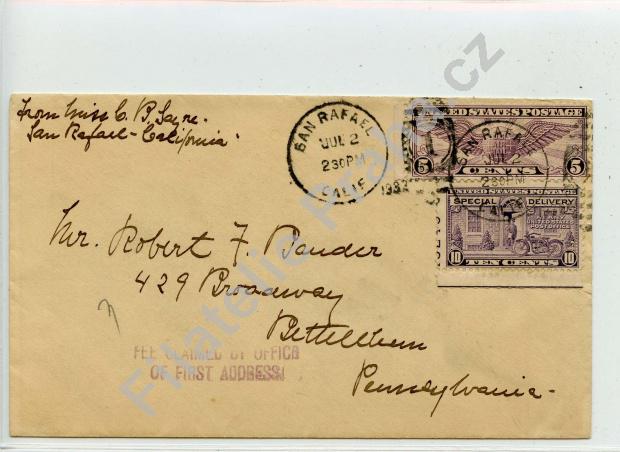 From Miss C. B. Sayre.
San Rafael - California
SAN RAFAEL
JUL 2
2 30 PM
CALIF.
1932
UNITED STATES POSTAGE
5 CENTS 5
SAN RAFAEL
JUL 2
2 30 PM
UNITED STATES POSTAGE
SPECIAL DELIVERY
UNITED STATES
POST OFFICE
10 TEN CENTS 10
Mr. Robert F. Bander
429 Broadway
Bethlehem
Pennsylvania -
FEE CLAIMED BY OFFICE
OF FIRST ADDRESS
Filatelia Praga cz